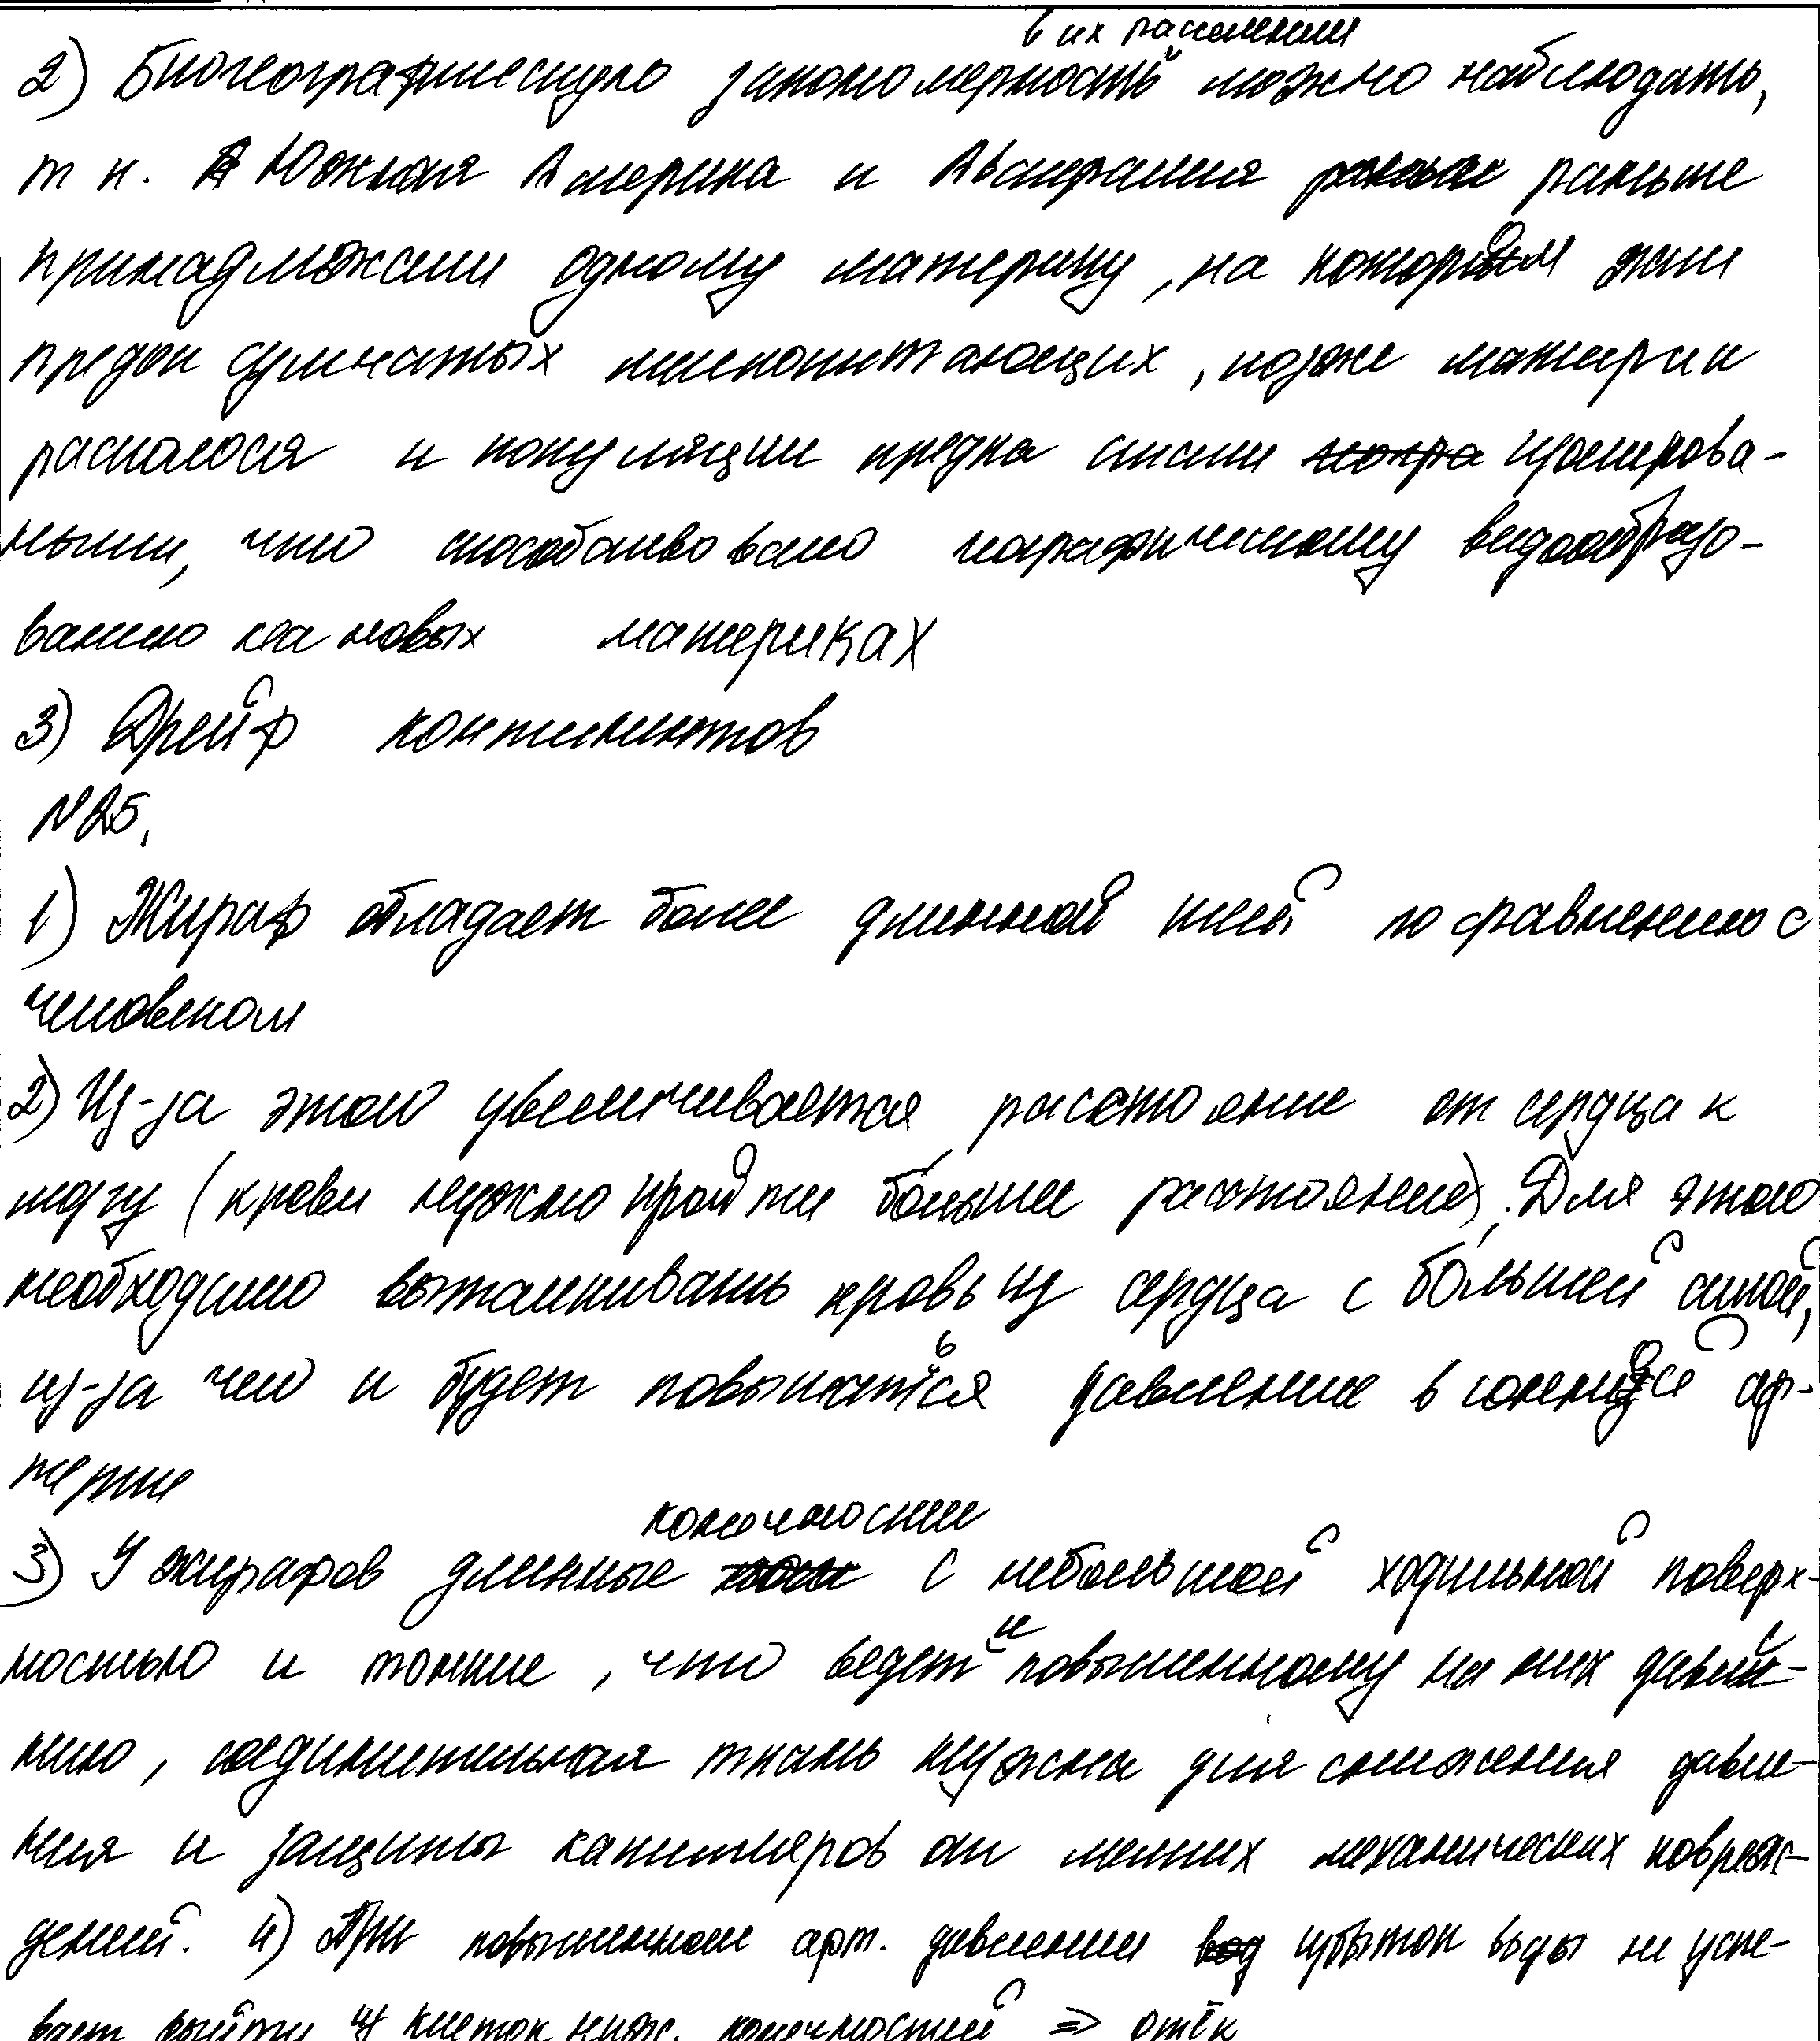 в их расселении
2) Биогеографическую закономерность можно наблюдать,
т к. Южная Америка и Австралия раньше
принадлежали одному материку, на котором жил
предок сумчатых млекопитающих, позже материк
раскололся и популяции предка стали изолирова-
ными, что способствовало географическому видообразо-
ванию на новых материках
3) Дрейф континентов
№25.
1) Жираф обладает более длинной шеей по сравнению с
человеком
2) Из-за этого увеличивается расстояние от сердца к
мозгу (крови нужно пройти больше расстояние). Для этого
необходимо выталкивать кровь из сердца с большей силой,
из-за чего и будет повышаться давление в сонной ар-
терии
конечности
3) У жирафов длинные с небольшой ходильной поверх-
ностью и тонкие, что ведет к повышенному на них давле-
нию, соединительная ткань нужна для снижения давле-
ния и защиты капилляров от мелких механических повреж-
дений. 4) При повышенном арт. давлении избыток воды не успе-
вает выйти из клеток ниж. конечностей => отёк